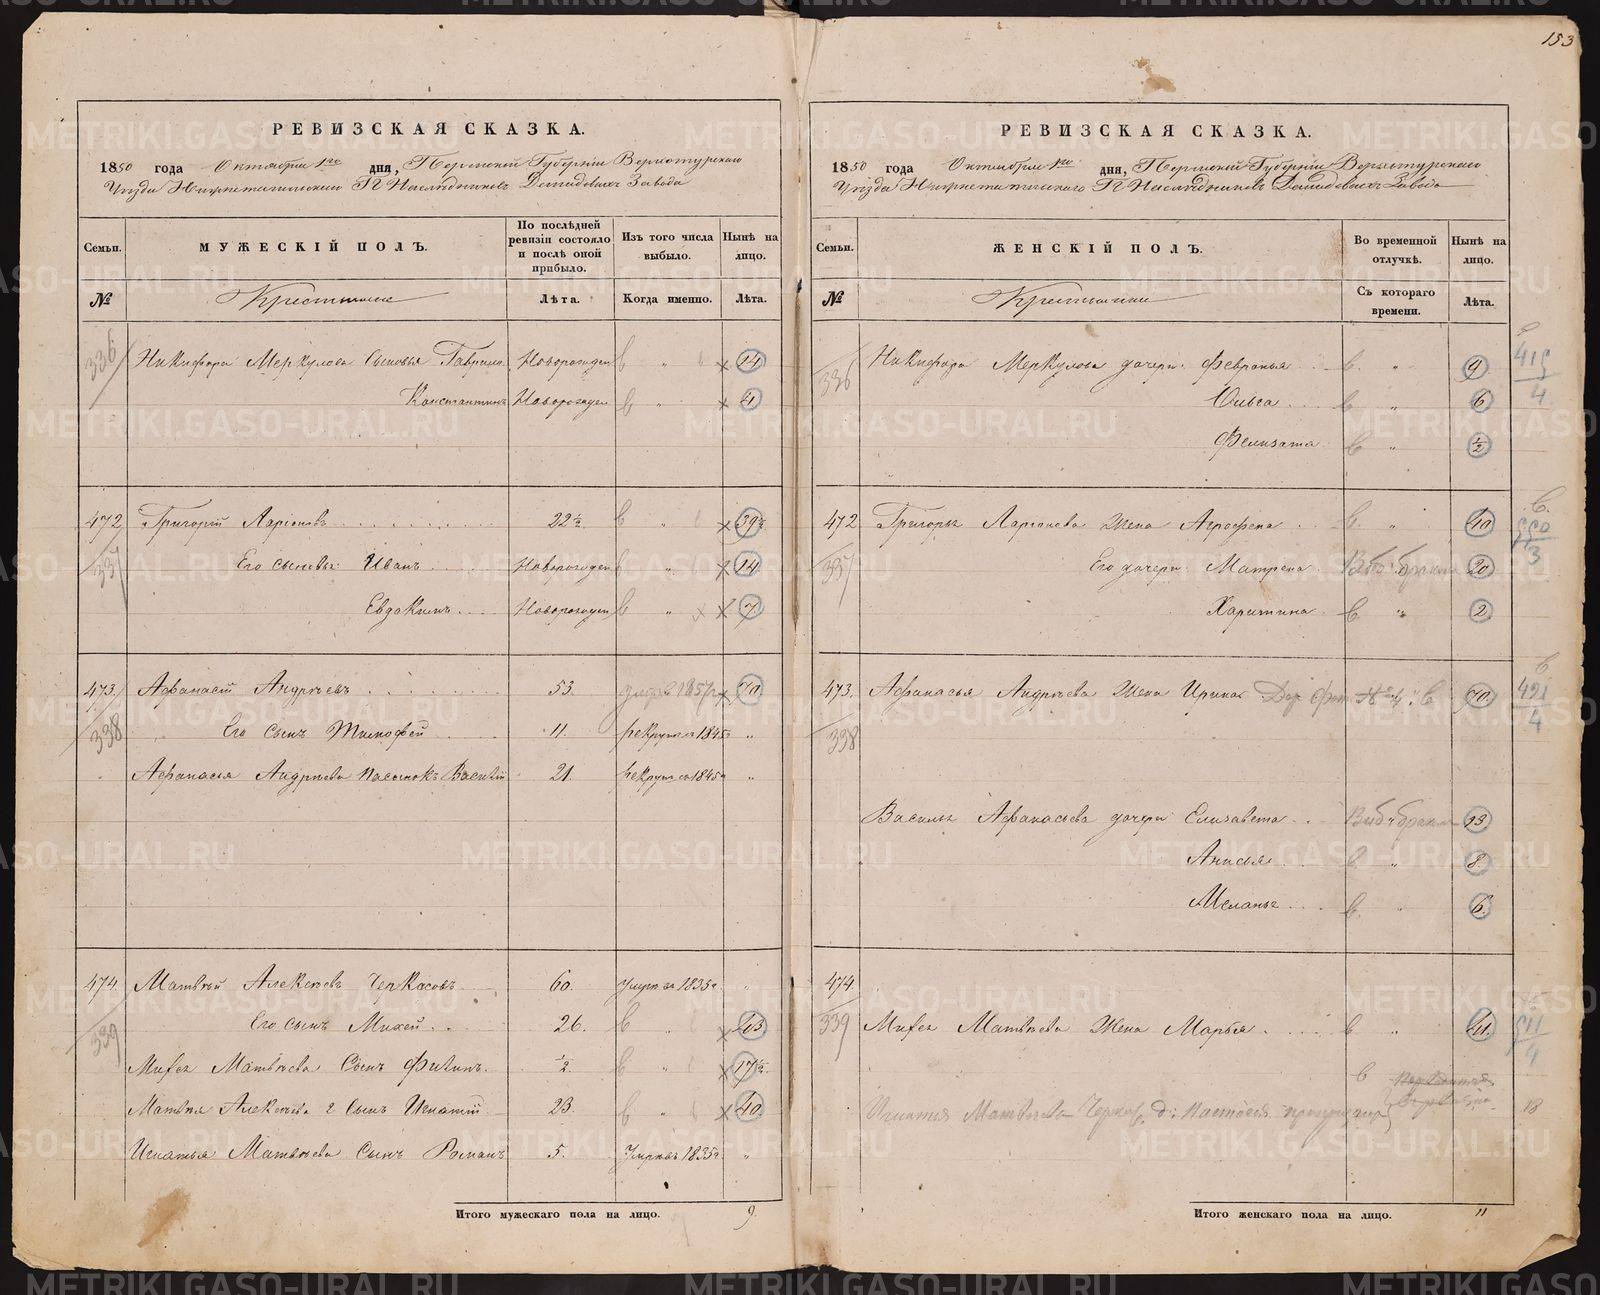 153
РЕВИЗСКАЯ СКАЗКА.
1850 года Октября 1го дня, Пермской Губерніи Верхотурскаго
Уѣзда Нижнетагильскаго Гг Наслѣдниковъ Демидовыхъ Завода
Семьи. МУЖЕСКІЙ ПОЛЪ. По послѣдней ревизіи состояло и послѣ оной прибыло. Изъ того числа выбыло. Нынѣ на лицо.
№ Крестьяне Лѣта. Когда именно. Лѣта.
336 Никифора Меркулова Сыновья Гаврило Новорожден " 14
Константинъ Новорожден " 4
472 Григорій Ларіоновъ 22½ " 39½
337 Его сыновья Иванъ Новорожден " 14
Евдокимъ Новорожден " 7
473. Афанасій Андреевъ 53. 1857 70.
338 Его сынъ Тимофей 11. рекрут въ 1845г "
Афанасья Андреева пасынокъ Василій 21. рекрут въ 1845г "
474. Матвѣй Алексѣевъ Черкасовъ 60. умръ въ 1835г "
339 Его сынъ Михей 26. " 43
Михея Матвѣева Сынъ Филипъ ½ " 17½
Матвѣя Алексѣева 2 Сынъ Игнатій 23. " 40.
Игнатья Матвѣева Сынъ Романъ 5. Умръ въ 1835г "
Итого мужескаго пола на лицо. 9
РЕВИЗСКАЯ СКАЗКА.
1850 года Октября 1го дня, Пермской Губерніи Верхотурскаго
Уѣзда Нижнетагильскаго Гг Наслѣдниковъ Демидовыхъ Завода
Семьи. ЖЕНСКІЙ ПОЛЪ. Во временной отлучкѣ. Нынѣ на лицо.
№ Крестьянки Съ котораго времени. Лѣта.
336 Никифора Меркулова дочери: Февронья " 9
Ольга " 6
Фелизата " ½
472 Григорья Ларіонова Жена Агрофена " 40
337 Его дочери: Матрена 20
Харитина " 2
473. Афанасья Андреева Жена Ирина 70
338
Василья Афанасьева дочери Елизавета 13
Анисья " 8.
Меланья " 6.
474.
339 Михея Матвѣева Жена Марья " 41.
Игнатья Матвѣева 18
Итого женскаго пола на лицо. 11
METRIKI.GASO-URAL.RU